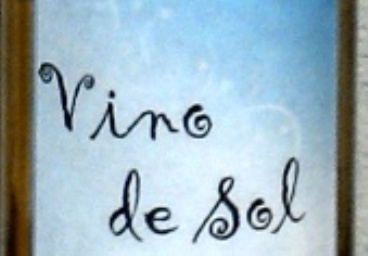 Vino
de Sol